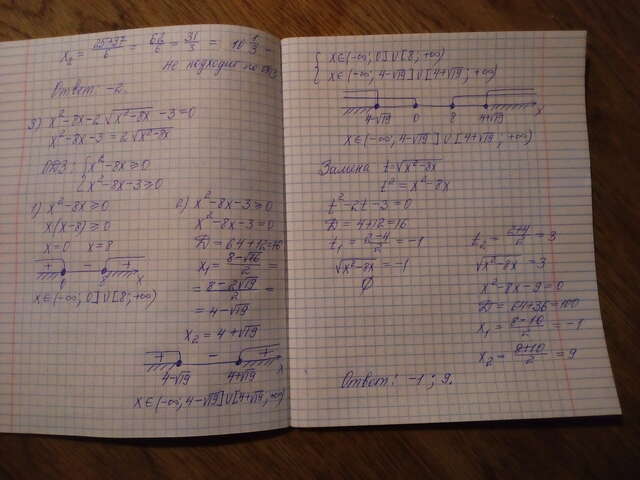 x₂ = (25+37)/6 = 62/6 = 31/3 = 10 1/3 –
не подходит по ОДЗ.
Ответ: -2.
3) x²-8x-2√(x²-8x) -3=0
x²-8x-3=2√(x²-8x)
ОДЗ: { x²-8x≥0
{ x²-8x-3≥0
1) x²-8x≥0
x(x-8)≥0
x=0 x=8
+ – + x
0 8
x∈(-∞; 0]∪[8; +∞)
2) x²-8x-3≥0
x²-8x-3=0
D=64+12=76
x₁= (8-√76)/2 =
= (8-2√19)/2 =
= 4-√19
x₂ = 4+√19
+ – + x
4-√19 4+√19
x∈(-∞; 4-√19]∪[4+√19; +∞)
{ x∈(-∞; 0]∪[8; +∞)
{ x∈(-∞; 4-√19]∪[4+√19; +∞)
4-√19 0 8 4+√19 x
x∈(-∞; 4-√19]∪[4+√19; +∞)
Замена t=√(x²-8x)
t²=x²-8x
t²-2t-3=0
D=4+12=16
t₁= (2-4)/2 = -1
√(x²-8x) = -1
∅
t₂= (2+4)/2 = 3
√(x²-8x) =3
x²-8x-9=0
D=64+36=100
x₁= (8-10)/2 = -1
x₂= (8+10)/2 = 9
Ответ: -1; 9.